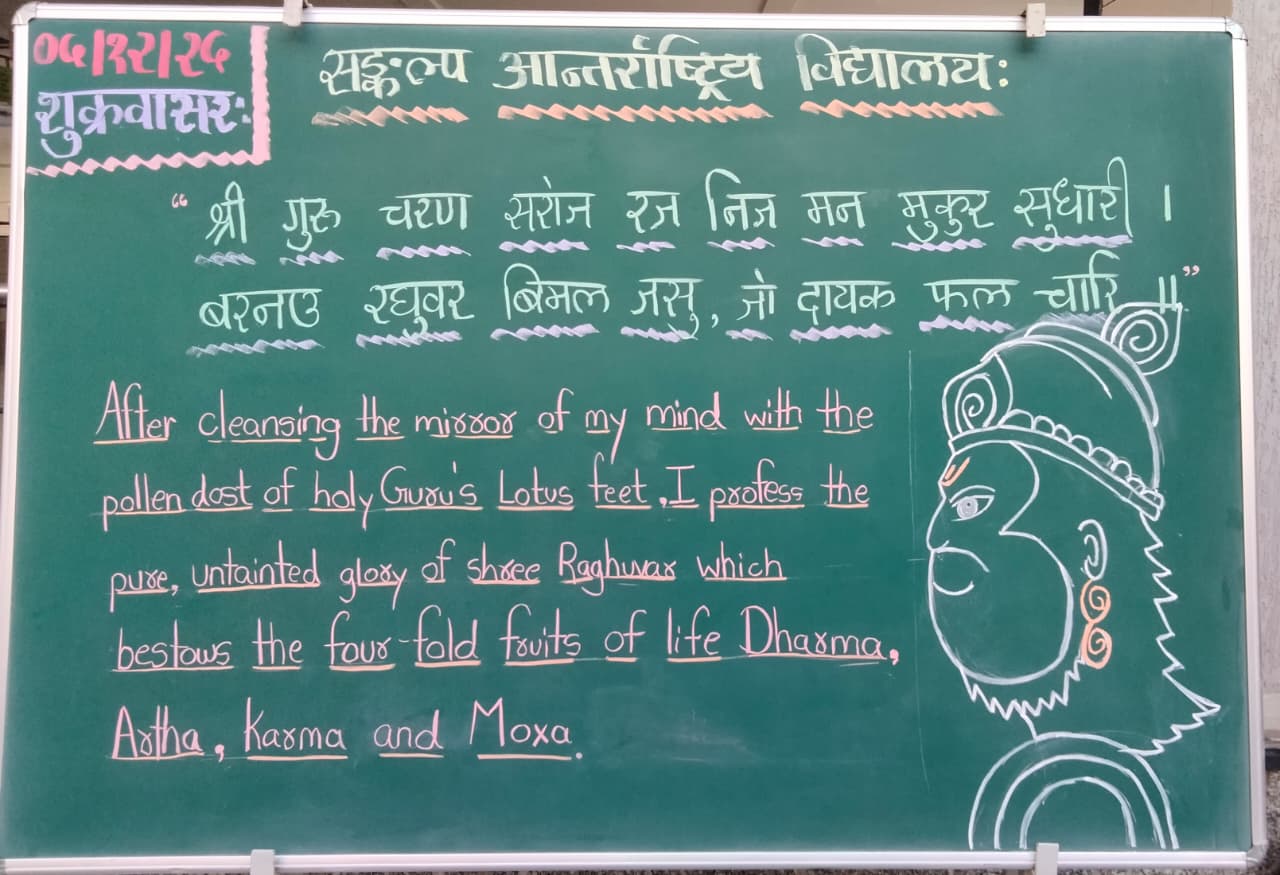 ०५/१२/२५
शुक्रवासरः
सङ्कल्प आन्तर्राष्ट्रिय विद्यालयः
“श्री गुरु चरण सरोज रज निज मन मुकुर सुधारी ।
बरनउ रघुवर बिमल जसु, जो दायक फल चारि ॥”
After cleansing the mirror of my mind with the
pollen dost of holy Guru's Lotus feet, I profess the
pure, untainted glory of shree Raghuvar which
bestows the four-fold fruits of life Dharma,
Artha, Karma and Moxa.